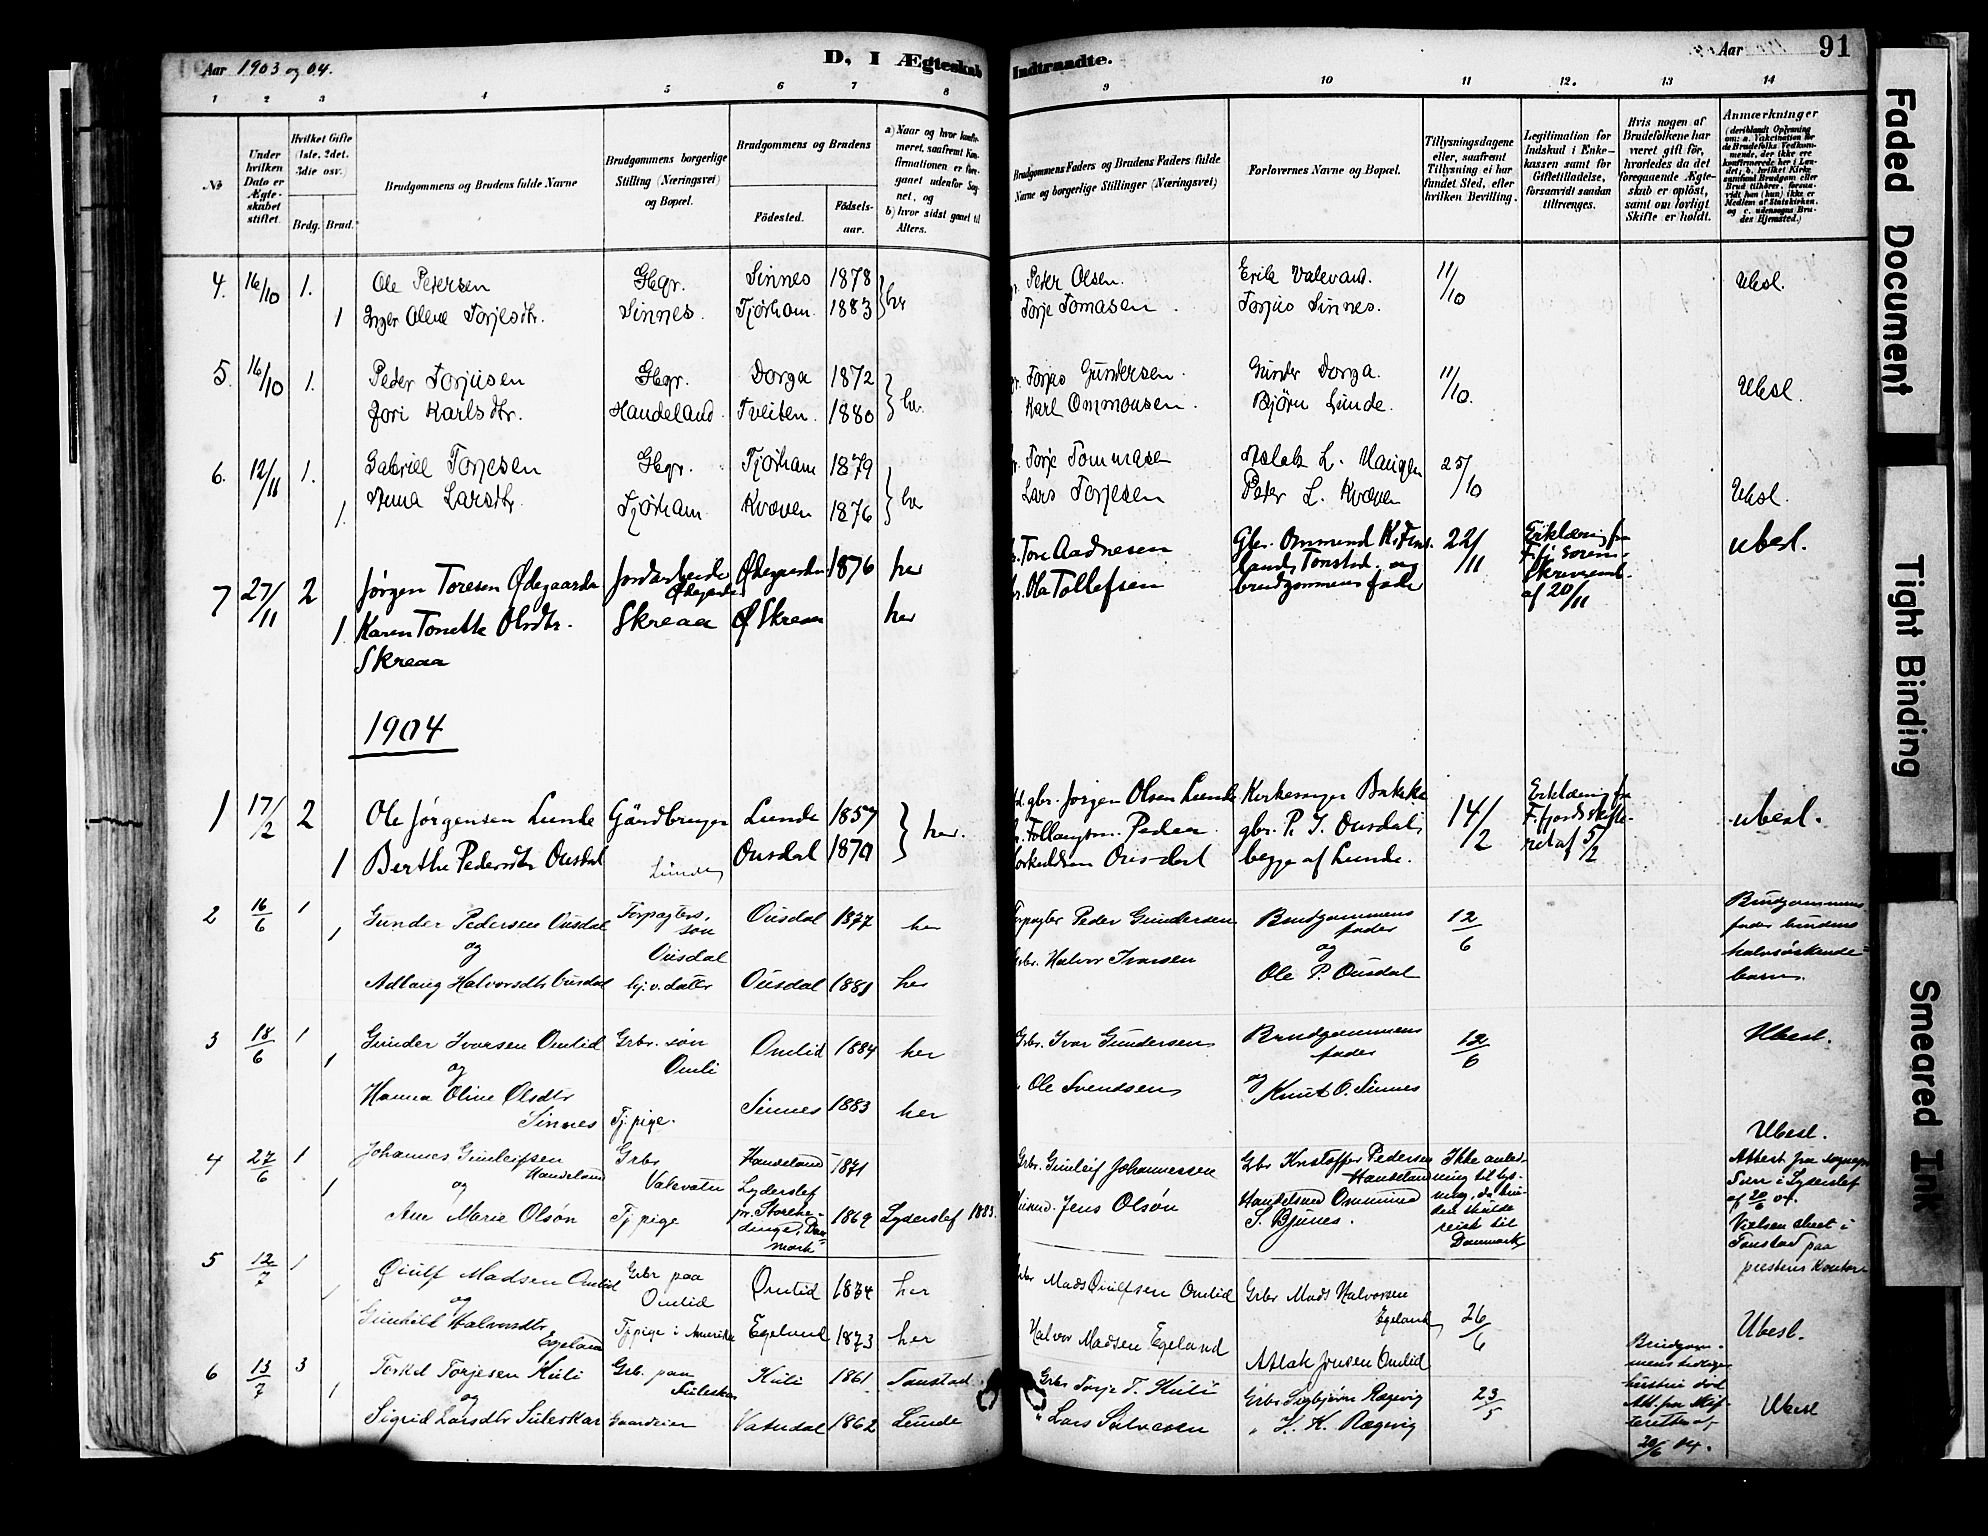 Aar 1903 og 04.
D, I Ægteskab Indtraadte.
Aar
91
1 2 3 4 5 6 7 8 9 10 11 12. 13 14
No
Under hvilken Dato er Ægteskabet stiftet.
Hvilket Gifte (1ste, 2det, 3die osv.)
Brdg. Brud.
Brudgommens og Brudens fulde Navne
Brudgommens borgerlige Stilling (Næringsvei) og Bopæl.
Brudgommens og Brudens
Födested.
Födselsaar.
a) Naar og hvor konfirmeret, saafremt Konfirmationen er foreganet udenfor Sognet, og
b) hvor sidst gaaet til Alters.
Brudgommens Faders og Brudens Faders fulde Navne og borgerlige Stillinger (Næringsvei)
Forlovernes Navne og Bopæl.
Tillysningsdagene eller, saafremt Tillysning ei har fundet Sted, efter hvilken Bevilling.
Legitimation for Indskud i Enkekassen samt for Giftetilladelse, forsaavidt saadan tiltrænges.
Hvis nogen af Brudefolkene har været gift før, hvorledes da det foregaaende Ægteskab er oplöst, samt om lovligt Skifte er holdt.
Anmærkninger
4. 16/10 1. Ole Petersen Gbgr. Sinnes 1878 her Peder Olsen. Erik Valevand. 11/10 Ubesl.
1 Inger Olene Torjesdtr. Sinnes. Tjørham 1883 Torje Tomasen. Torjus Sinnes.
5. 16/10 1. Peder Torjusen Gbgr. Dorga 1872 her Torjus Gundersen. Gunder Dorga. 11/10. Ubesl.
Jori Karlsdtr. Haudeland. Tveiten. 1880 Karl Ommonsen. Bjørn Lunde.
6. 12/11 1. Gabriel Torjesen Gbgr. Tjørham 1879 her Torje Tommasen Aslak L. Haugen 25/10
1. Anna Larsdtr. Tjørham Kvæven 1876 Lars Torjesen Peter L. Kvæven Ubesl.
7 27/11 2 Jørgen Toresen Ødegaarden Jordarbeider Ødegaarden Ødegaarden 1876 her Tore Aadnesen Gbr. Ommund K. Finsland, Tonstad, og brudgommens fader 22/11 Erklæring fra F.fj. soren-skriveremb. af 20/11 ubesl.
1. Karen Tonette Olsdtr. Skreaa Skreaa Ø Skreaa her Ola Tollefsen
1904
1 17/2 2 Ole Jørgensen Lunde Gårdbruger Lunde 1857 her. gbr. Jørgen Olsen Lunde Kirkesanger Bakke 14/2 Erklæring fra F.fjords skifteret af 5/2 ubesl.
1 Berthe Pedersdtr Ousdal Lunde Ousdal 1870 Peder Ousdal gbr. P. T. Ousdal, begge af Lunde.
2 16/6 1 Gunder Pedersen Ousdal Forpagters søn Ousdal Ousdal 1877 her Forpagter Peder Gundersen Brudgommens fader 12/6 Brudgommens fader brudens halvsøskendebarn.
1 og Adlaug Halvorsdtr Ousdal hj.v. datter Ousdal 1881 her Gbr. Halvor Ivarsen og Ole P. Ousdal
3 18/6 1 Gunder Ivarsen Omlid Grbr. søn Omli Omlid 1884 her Grbr. Ivar Gundersen Brudgommens fader 12/6 Ubesl.
1 og Hanna Oline Olsdtr Sinnes Tj.pige. Sinnes 1883 her Ole Svendsen og Knut O. Sinnes
4 27/6 1 Johannes Gunleifsen Haudeland Grbr Valevatn Haudeland 1871 Grbr. Gunleif Johannessen Grbr Kristoffer Pedersen Haudeland Ikke anledning til lysning, da bruden skulde reise til Danmark Ubesl. Attest fra sognepr. i Lyderslef af 20/6 04. Vielsen skeet i Tonstad paa prestens kontor
1 og Ane Marie Olsøn Tj pige Lyderslef pr. Storehedinge, Danmark 1869 Lyderslef 1883. Jens Olsøn Handelsmd Ommund S. Bjunes.
5 12/7 1 Øiulf Madsen Omlid Grbr paa Omlid Omlid 1874 her Grbr Mads Øiulfsen Omlid Grbr Mads Halvorsen Egeland 26/6 Ubesl.
og Gunhild Halvorsdtr Egeland Tj pige i Amerika Egeland 1873 her Halvor Madsen Egeland Atlak Jonsen Omlid
6 13/7 3 Torkel Torjesen Kuli Grb. paa Suleskar Kuli 1861 Tonstad. Grbr Torje T. Kuli Grbr Sigbjørn Rægevig 23/5 Brudgommens tidligere hustru død Att. fra skifteretten af 20/6 04. Ubesl
1 og Sigrid Larsdtr Suleskar Vatndal 1862 Lunde Lars Salvesen K. Rægevig
Faded Document
Tight Binding
Smeared Ink